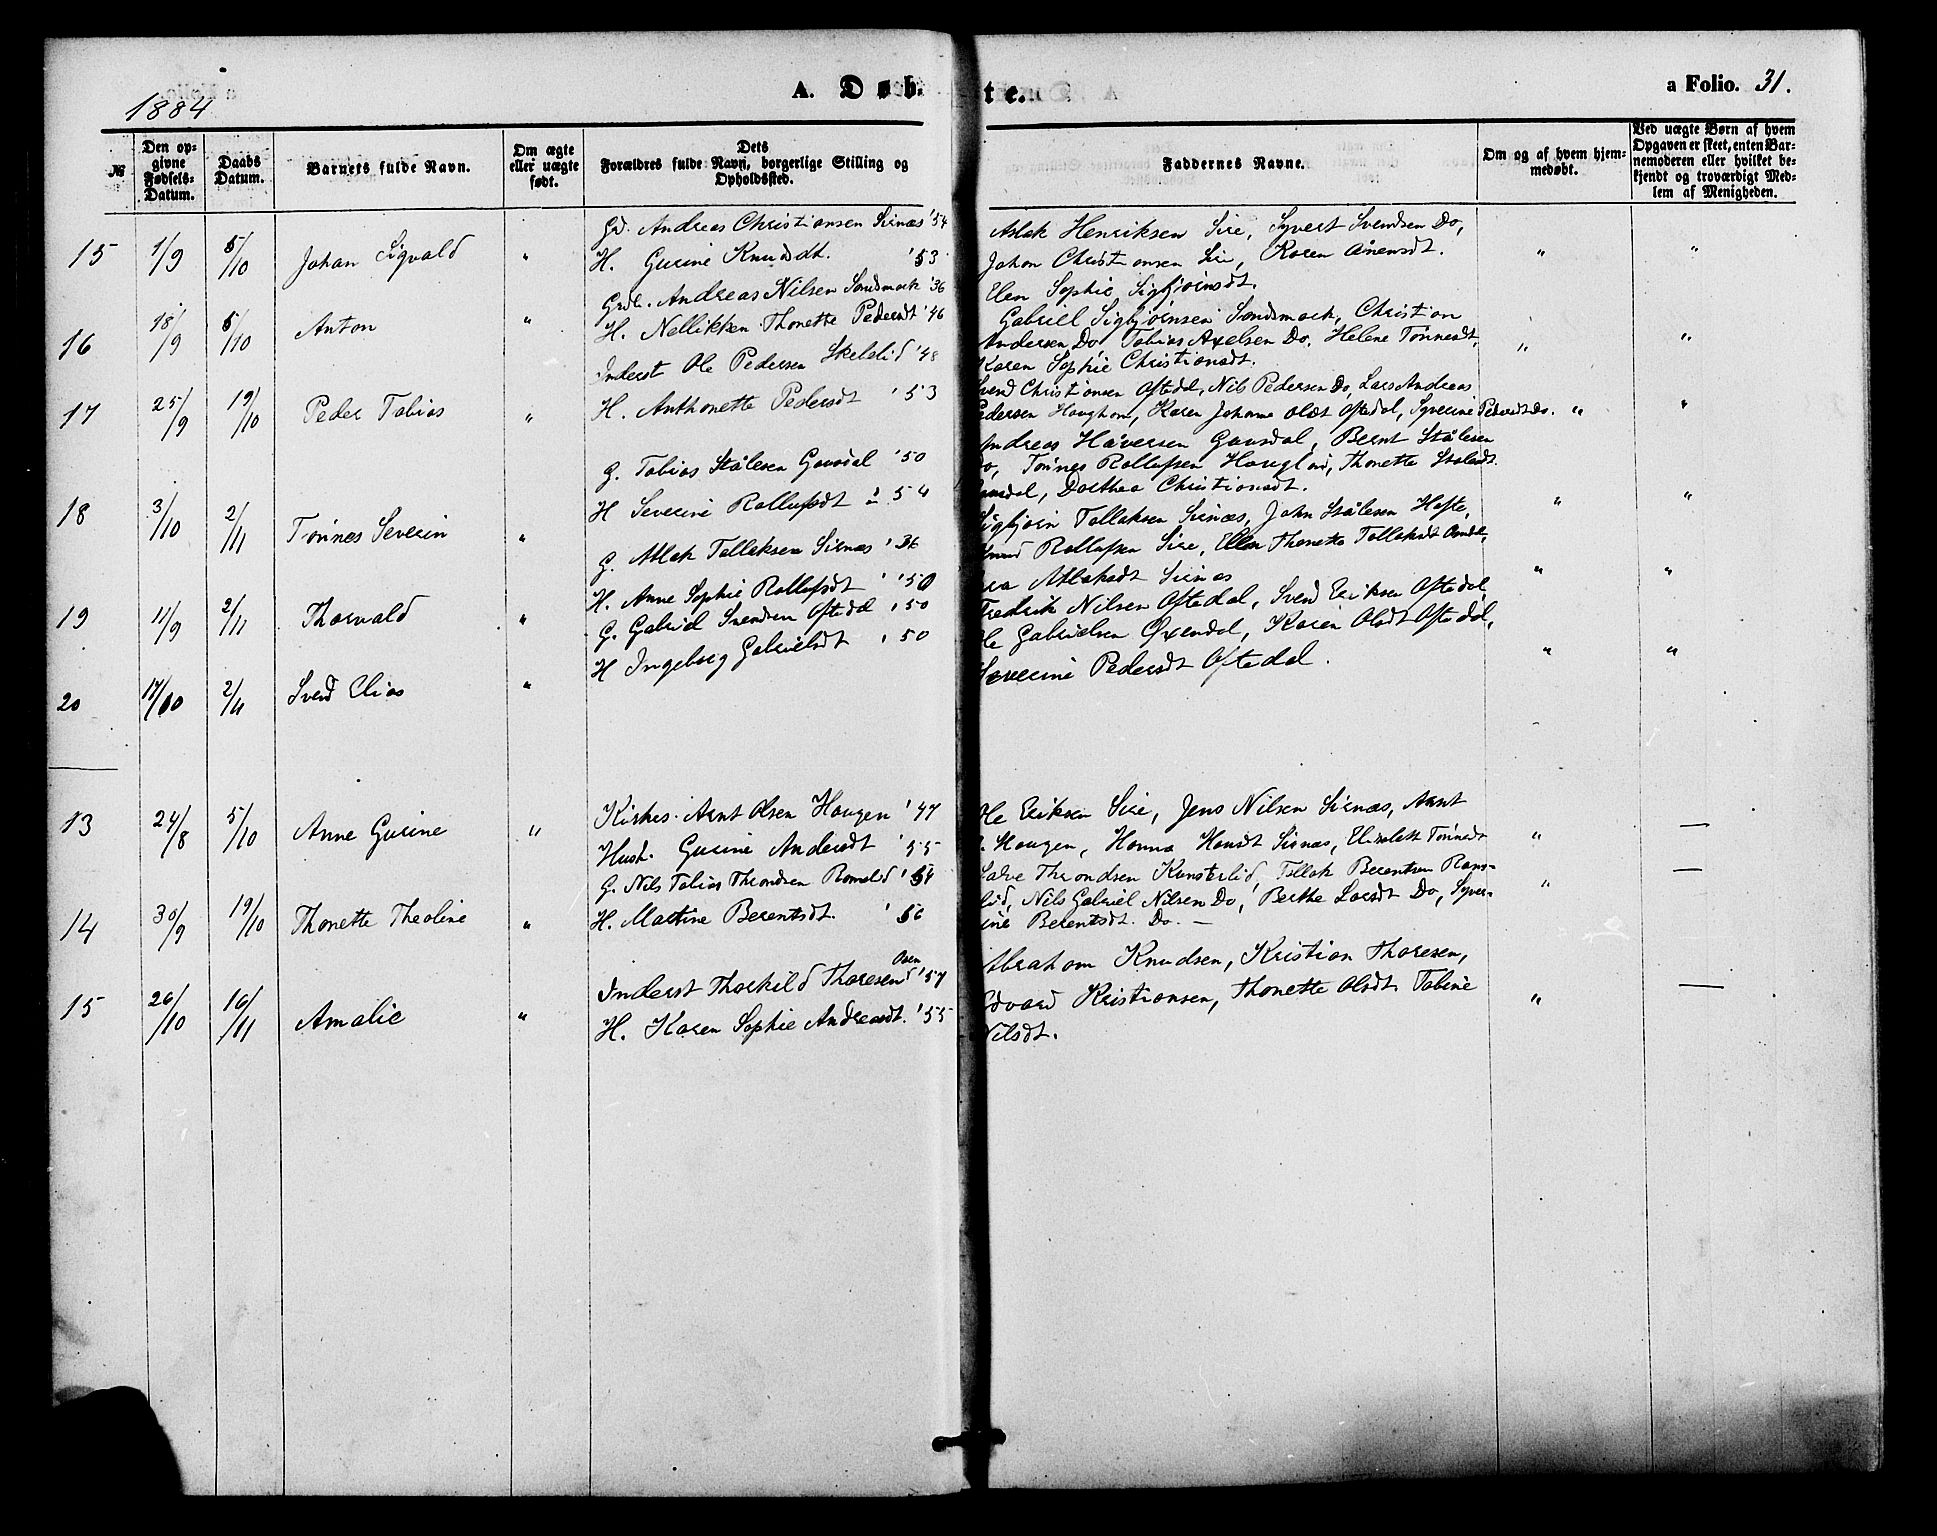 1884
A. Døb-
te.
a Folio. 31.
№
Den op-
givne
Fødsels-
Datum.
Daabs
Datum.
Barnets fulde Navn.
Om ægte
eller uægte
født.
Dets
Forældres fulde Navn, borgerlige Stilling og
Opholdssted.
Faddernes Navne.
Om og af hvem hjem-
medøbt.
Ved uægte Børn af hvem
Opgaven er skeet, enten Bar-
nemoderen eller hvilket be-
kjendt og troværdigt Med-
lem af Menigheden.
15 1/9 5/10 Johan Sigvald "
Gd. Andreas Christiansen Sirnæs '54
H. Gurine Knudsdt. '53
Aslak Henriksen Sire, Syvert Svendsen Do,
Johan Christiansen Sire, Karen Aanensdt.
Elen Sophie Sigbjørnsdt.
16 18/9 5/10 Anton "
Grdb. Andreas Nilsen Sandsmark '36
H. Nellikken Thonette Pedersdt '46
Gabriel Sigbjørnsen Sandsmark, Christian
Andersen Do, Tobias Axelsen Do, Helene Tønnesdt,
Karen Sophie Christiansdt.
17 25/9 19/10 Peder Tobias "
Inderst Ole Pedersen Skelelid '48
H. Anthonette Pedersdt '53
Svend Christiansen Oftedal, Nils Pedersen Do, Lars Andreas
Pedersen Haughom, Karen Johanne Olsdt Oftedal, Syverine Pedersdt Do. "
18 3/10 2/11 Tønnes Severin "
G. Tobias Stålesen Gausdal '50
H Severine Rollufsdt '54
Andreas Håversen Gausdal, Bernt Stålesen
Do, Tønnes Rollufsen Haugland, Thonette Stålesdt
Gausdal, Dorthea Christiansdt.
19 11/9 2/11 Thorvald "
G. Aslak Tollaksen Sirnæs '36
H. Anne Sophie Rollufsdt '50
Sigbjørn Tollaksen Sirnæs, John Stålesen Hofte,
Rollufsen Sire, Ellen Thonette Tollaksdt
Aslaksdt Sirnæs
20 17/10 2/11 Svend Elias "
G. Gabriel Svendsen Oftedal '50
H Ingeborg Gabrielsdt '50
Fredrik Nilsen Oftedal, Svend Eriksen Oftedal,
Ole Gabrielsen Øxendal, Karen Olsdt Oftedal,
Severine Pedersdt Oftedal.
13 24/8 5/10 Anne Gurine "
Kirkes. Arnt Olsen Haugen '47
Hust. Gurine Andersdt '55
Ole Eriksen Sire, Jens Nilsen Sirnæs, Arnt
Haugen, Hanna Hansdt Sirnæs, Elisabeth Tønnesdt
14 30/9 19/10 Thonette Theoline "
G. Nils Tobias Throndsen Ramslid '54
H. Martine Berentsdt. '56
Salve Throndsen Kunsterlid, Tollak Berentsen Rams-
lid, Nils Gabriel Nilsen Do, Berthe Larsdt Do, Syver-
ine Berentsdt. Do. —
15 26/10 16/11 Amalie "
Osen
Inderst Thorkild Thoresen '57
H. Karen Sophie Andreasdt. '55
Abraham Knudsen, Kristian Thoresen,
Edvard Kristiansen, Thonette Olsdt. Tobine
Nilsdt.